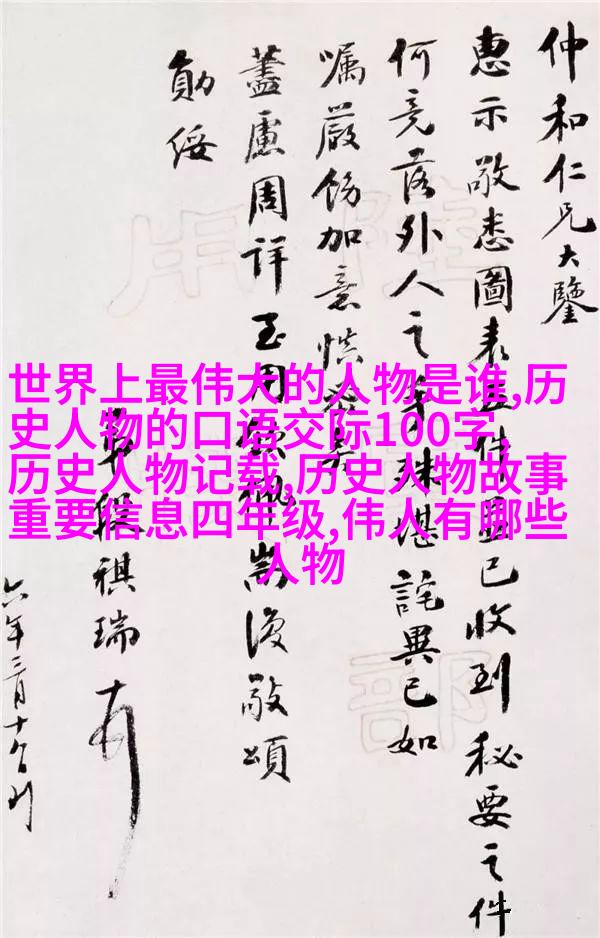 仲和仁兄大鑒
惠示敬悉圖表件已收到秘要之件
何竟落外人之手殊堪詫異已如
囑嚴飭加意慎
藎慮周詳至用肅復敬頌
勛綏
弟段祺瑞
六年三月十
世界上最伟大的人物是谁,历
史人物的口语交际100字,
历史人物记载,历史人物故事
重要信息四年级,伟人有哪些
人物